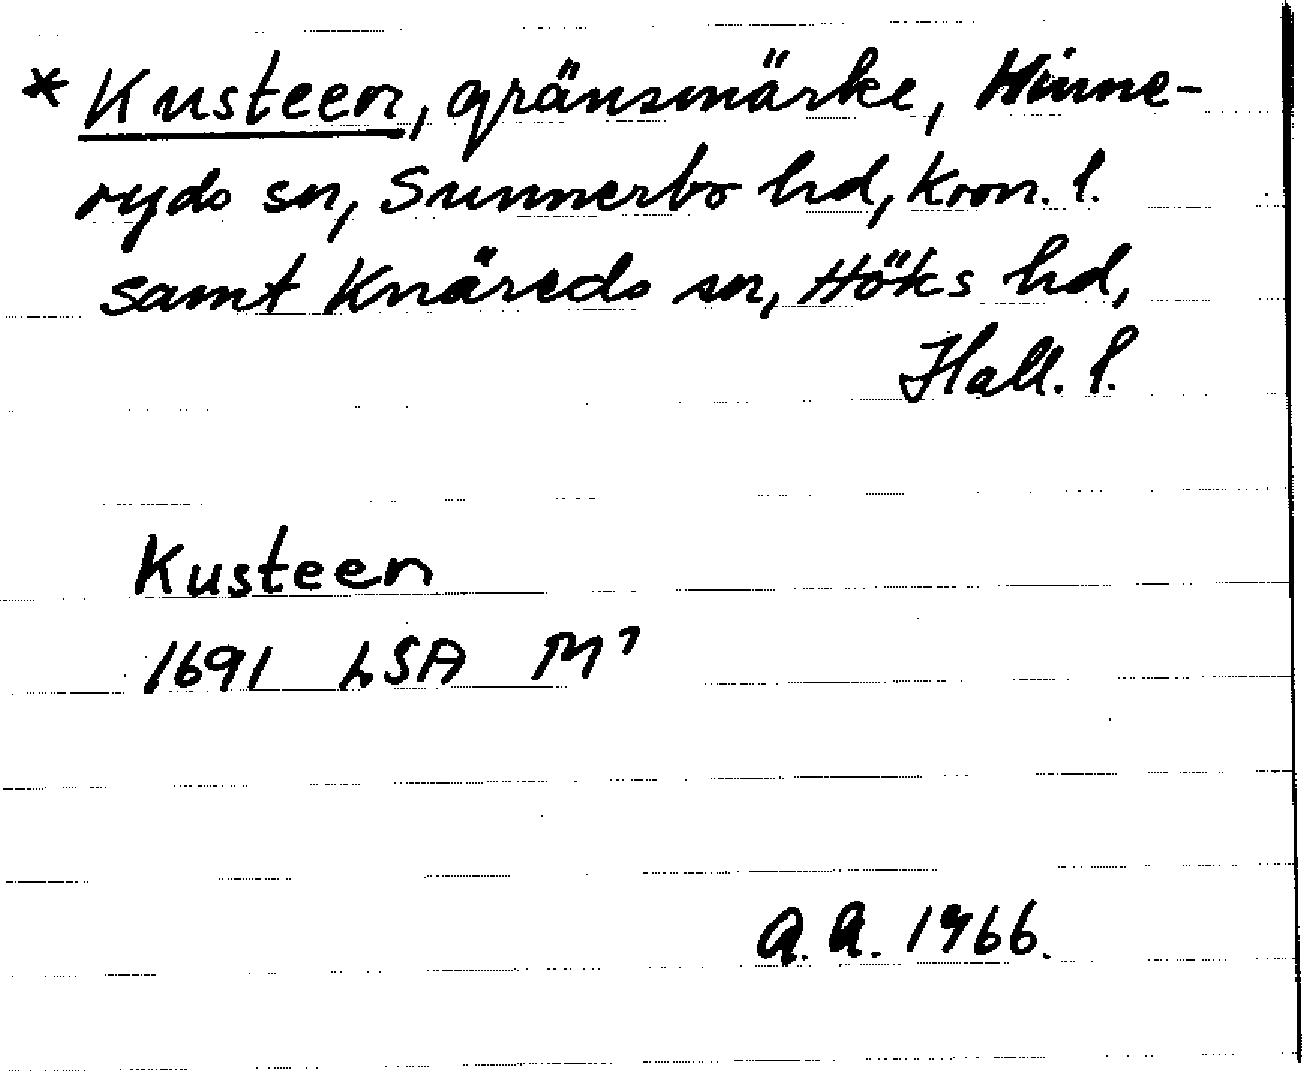 * Kusteen, gränsmärke, Hinne-
ryds sn, Sunnerbo hd, Kron. l.
samt Knäreds sn, Höks hd,
Hall. l.
Kusteen
1691 LSA M7
A. A. 1966.